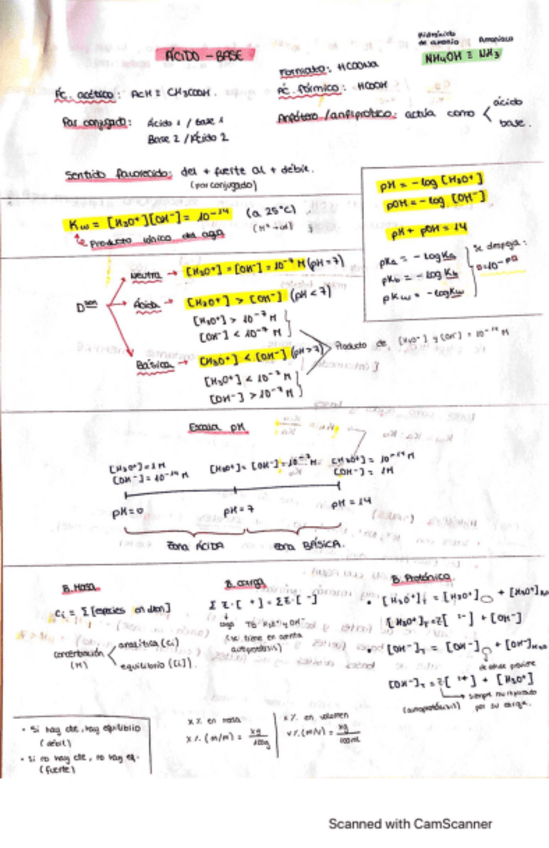 Hidróxido de amonio Amoniaco
NH4OH ≡ NH3
ÁCIDO - BASE
Formiato: HCOONa
Ác. acético: AcH ≡ CH3COOH.
Ác. fórmico: HCOOH
Par conjugado: Ácido 1 / base 1
Base 2 / Ácido 2
Anfótero / anfiprótico: actúa como ácido base.
Sentido favorecido: del + fuerte al + débil.
(par conjugado)
pH = -log [H3O+]
pOH = -log [OH-]
pH + pOH = 14
Kw = [H3O+][OH-] = 10^-14 (a 25°C)
Producto iónico del agua
pKa = -log Ka
pKb = -log Kb
pKw = -log Kw
Se despeja:
Dson
Neutra → [H3O+] = [OH-] = 10^-7 M (pH = 7)
Ácida → [H3O+] > [OH-] (pH < 7)
[H3O+] > 10^-7 M
[OH-] < 10^-7 M
Producto de [H3O+] y [OH-] = 10^-14 M
Básica → [H3O+] < [OH-] (pH > 7)
[H3O+] < 10^-7 M
[OH-] > 10^-7 M
Escala pH
[H3O+] = 1M [H3O+] = [OH-] = 10^-7 M [H3O+] = 10^-14 M
[OH-] = 10^-14 M [OH-] = 1M
pH = 0 pH = 7 pH = 14
zona ÁCIDA zona BÁSICA.
B. Masa
Ci = Σ [especies en dson]
concentración (M)
analítica (Ci)
equilibrio ([i]).
B. carga
Σ z·[ +] = Σ z·[ -]
carga
(se tiene en cuenta autoprotólisis)
B. Protónico
[H3O+]T = [H3O+] + [H3O+]
[H3O+]T = z[ -] + [OH-]
[OH-]T = [OH-] + [OH-]
de donde proviene
[OH-]T = z[ +] + [H3O+]
siempre multiplicado por su carga.
(autoprotólisis)
• Si hay cte, hay equilibrio (débil)
• Si no hay cte, no hay eq. (fuerte)
X % en masa
X % (m/m) = xg/100g
X % en volumen
X % (m/v) = xg/100mL
Scanned with CamScanner